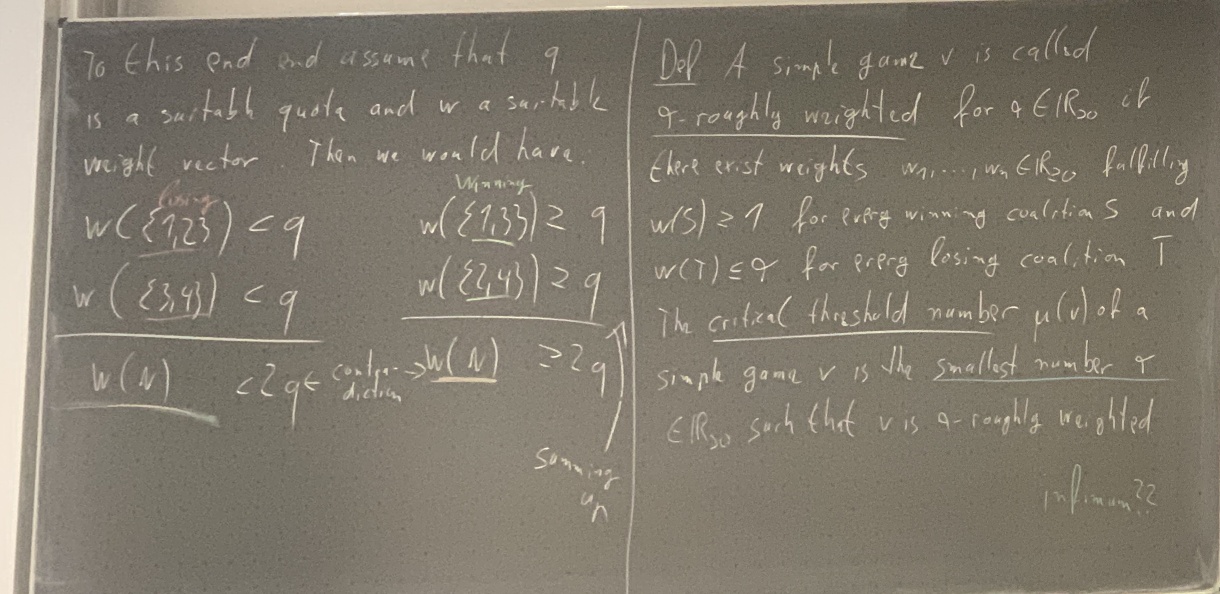 To this end end assume that q
is a suitable quota and w a suitable
weight vector. Then we would have:
losing
w({1,2}) < q
w({3,4}) < q
w(N) < 2q ← contra-
diction
winning
w({1,3}) ≥ q
w({2,4}) ≥ q
→ w(N) ≥ 2q
Summing
up
Def A simple game v is called
α-roughly weighted for α ∈ ℝ≥0 if
there exist weights w1,...,wn ∈ ℝ≥0 fulfilling
w(S) ≥ 1 for every winning coalition S and
w(T) ≤ α for every losing coalition T
The critical threshold number μ(v) of a
simple game v is the smallest number α
∈ ℝ≥0 such that v is α-roughly weighted
infimum??